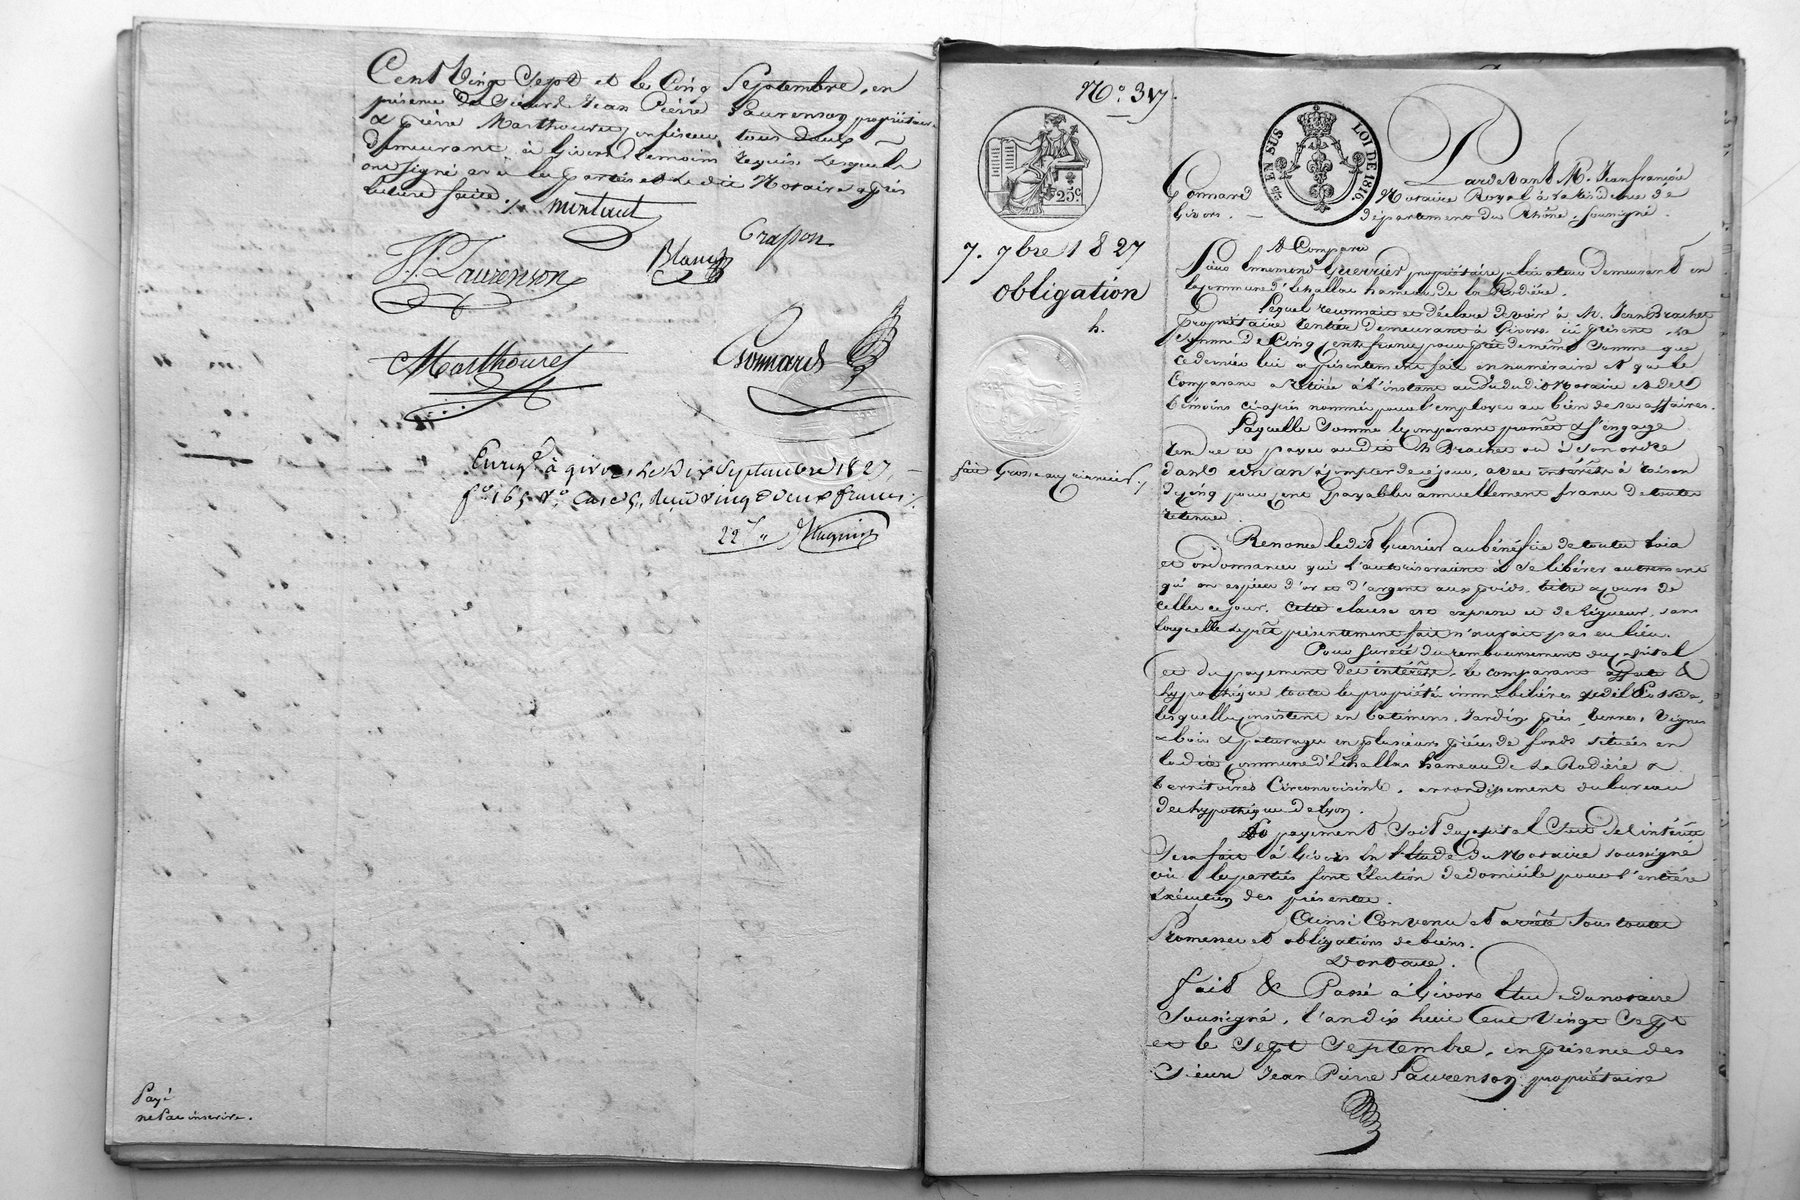 Cent Vingt Sept et le Cinq Septembre, en
présence des Sieurs Jean Pierre Laurenson propriétaire
& Pierre Marthouret confiseur, tous deux
demeurant à Givors, témoins requis, Lesquels
ont signé avec les parties et Ledit Notaire après
lecture faite ./.
Grasson
Blanc
J. P. Laurenson
Marthouret
Gonnard
Enreg.é à givors, le dix Septembre 1827,
f.o 165 v.o case 5, reçu vingt deux francs ./.
22 f "
Payé
ne pas inscrire.
N.o 317.
25 EN SUS LOI DE 1816
25 c.
7. 7bre 1827
obligation
h.
fait Grosse au créancier ./.
Pardevant M.e Jean françois
Gonnard Notaire Royal à la résidence de
Givors. département du Rhône, soussigné.
A Comparu
Sieur Ennemond Guerrier, propriétaire cultivateur demeurant en
la commune d'Echallas hameau de la Rodière.
Lequel reconnait et déclare devoir à M. Jean Brachet
propriétaire rentier demeurant à Givors ici présent la
somme de Cinq cents francs pour prêt de même somme que
ce dernier lui a présentement fait en numéraire et que le
Comparant a retirée à l'instant au vu dudit Notaire et des
témoins ci-après nommés pour l'employer au bien de ses affaires.
Laquelle Somme le comparant promet & s'engage
rendre et payer audit M. Brachet ou à son ordre
dans un an à compter de ce jour, avec intérêts à raison
de cinq pour cent payables annuellement francs de toutes
retenues.
Renonce ledit Guerrier au bénéfice de toutes lois
et ordonnances qui l'autoriseraient à se libérer autrement
qu'en espèces d'or et d'argent aux poids, titre & cours de
celles ce jour. Cette clause est expresse et de rigueur, sans
laquelle le prêt présentement fait n'aurait pas eu lieu.
Pour sureté du remboursement du capital
et du payement des intérêts, le comparant affecte &
hypothèque toutes les propriétés immobilières qu'il possède,
lesquelles consistent en batimens, Jardin, prés, terres, Vignes
& bois & paturages en plusieurs pièces de fonds situées en
ladite Commune d'Echallas hameau de La Rodière &
territoires Circonvoisins, arrondissement du bureau
des hypothèques de Lyon.
Le payement, soit du capital soit des intérêts
sera fait à Givors en l'étude du Notaire soussigné
où les parties font élection de domicile pour l'entière
exécution des présentes.
Ainsi Convenu et arrêté sous toutes
Promesses et obligations de biens.
Dont acte.
fait & Passé à Givors étude du notaire
soussigné, l'an dix huit Cent Vingt Sept
et le Sept Septembre, en présence des
Sieurs Jean Pierre Laurenson propriétaire